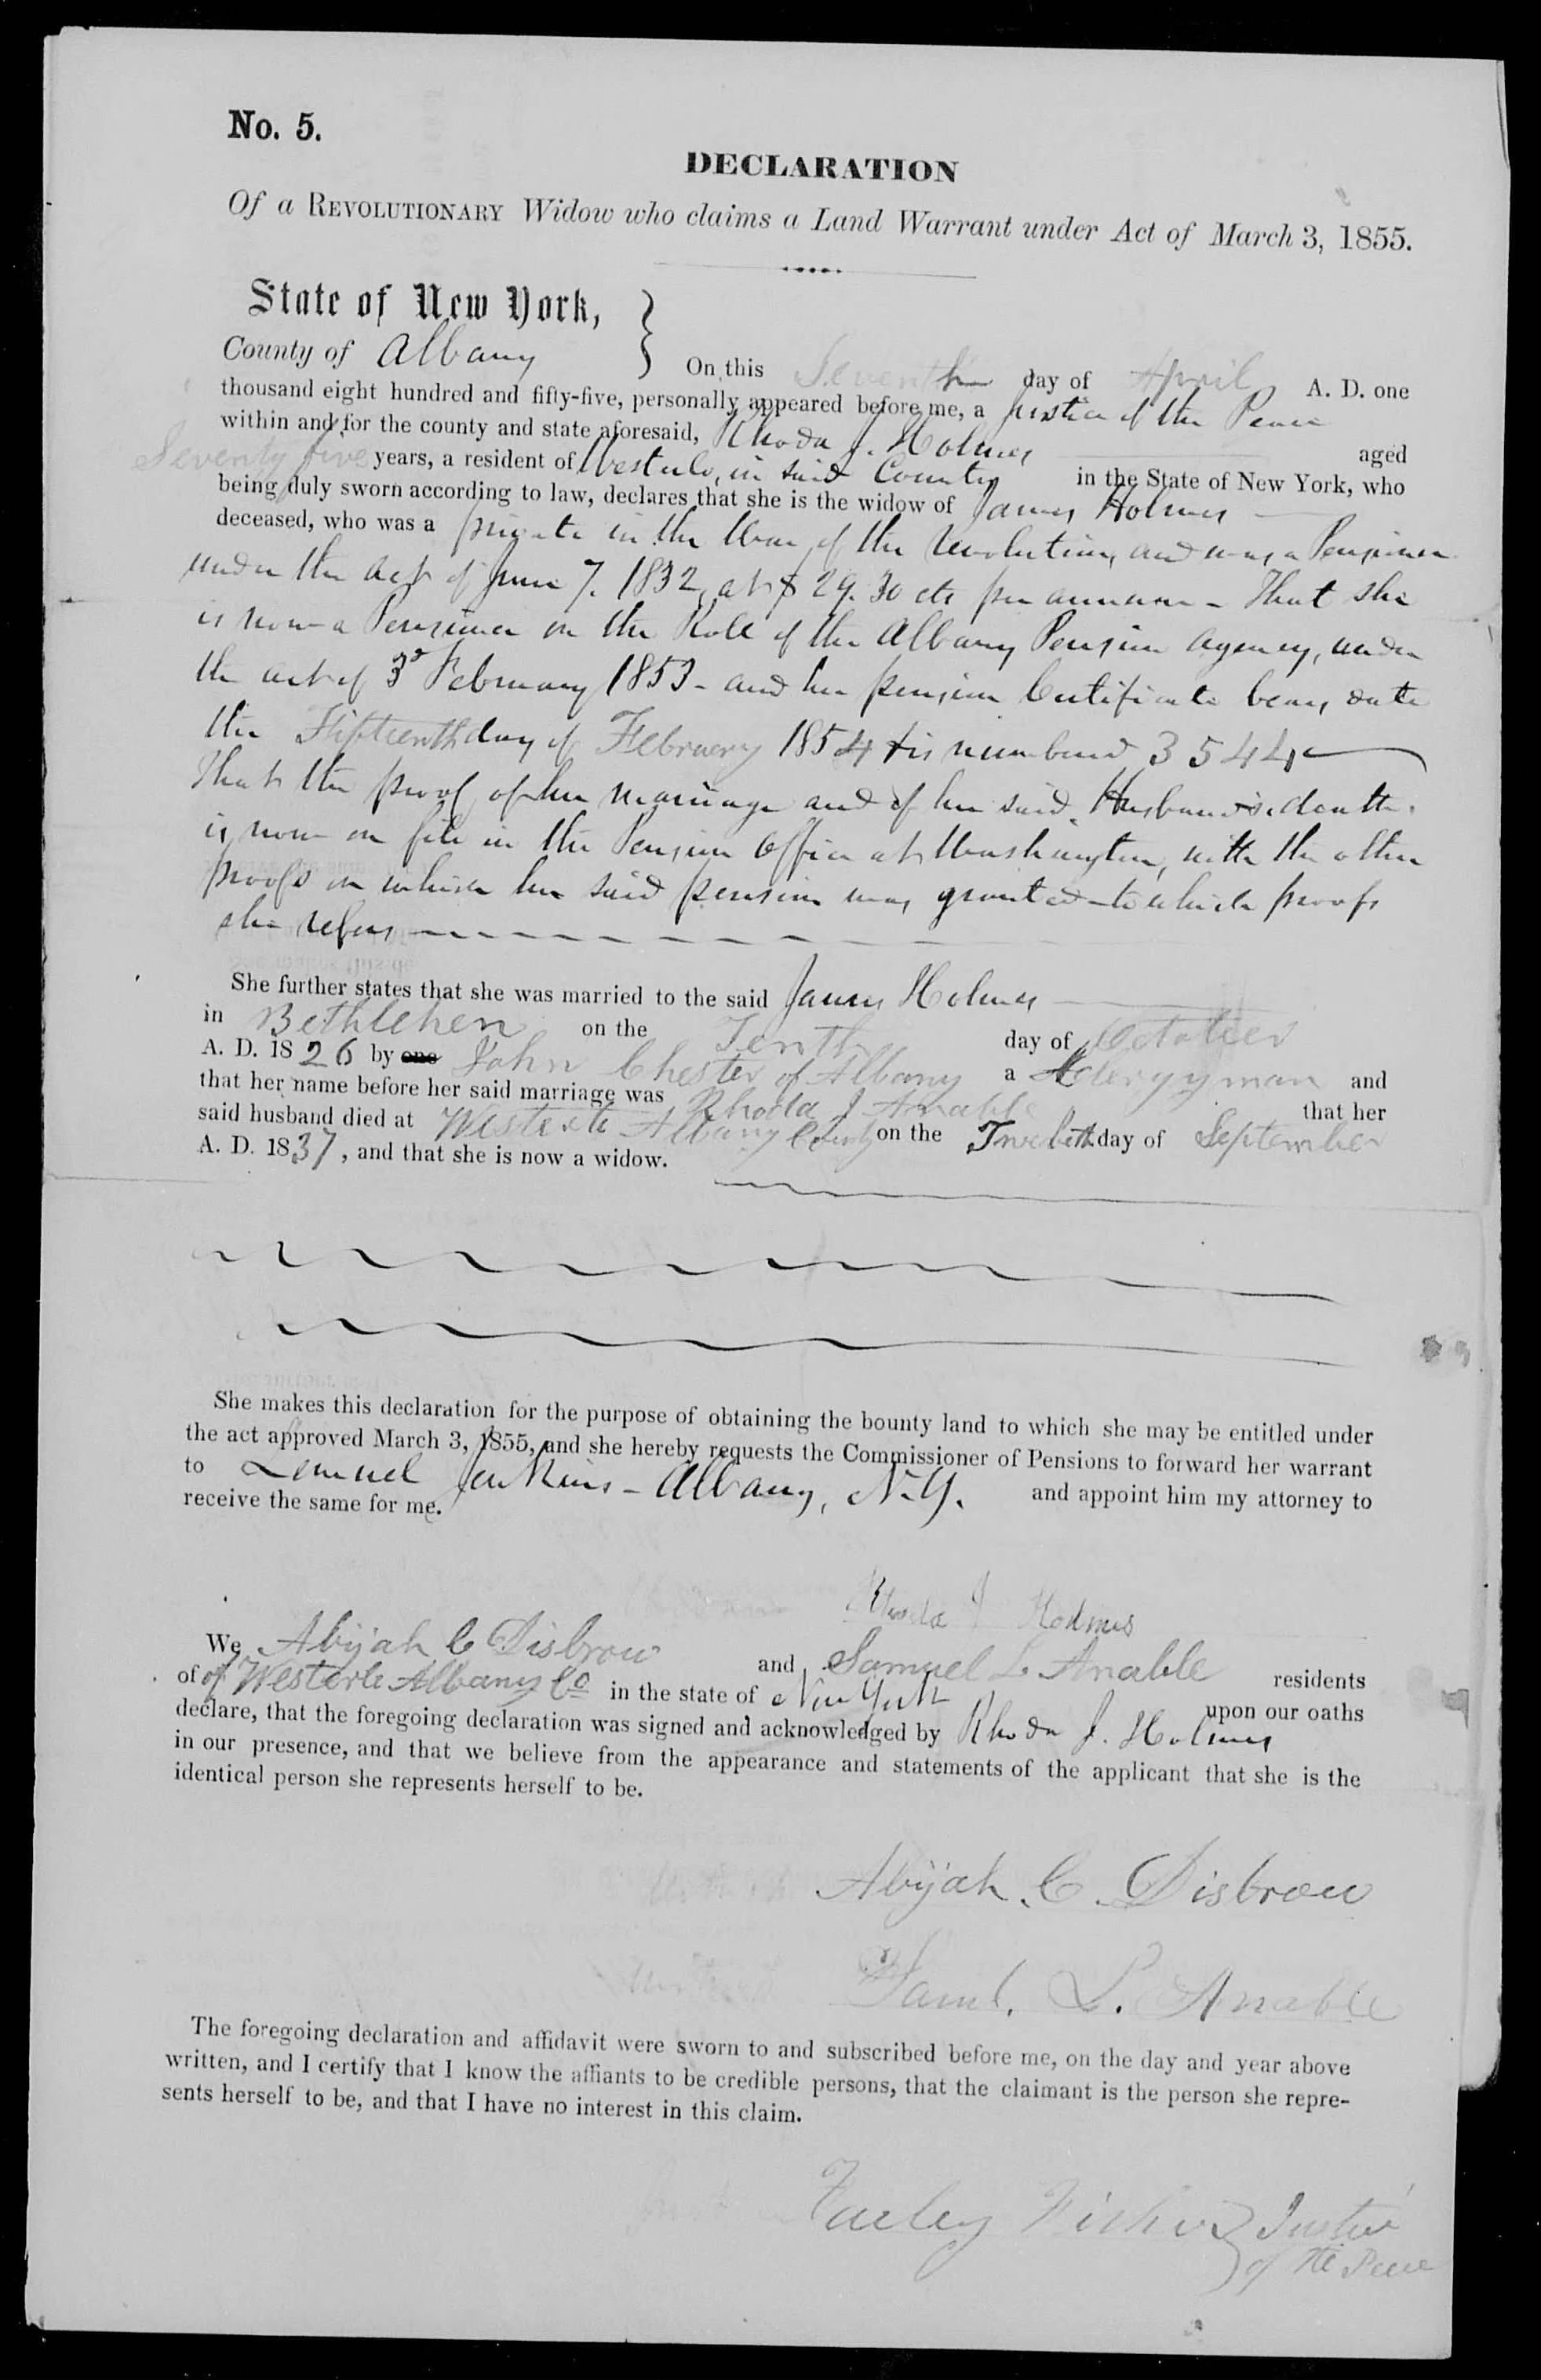 No. 5.
DECLARATION
Of a REVOLUTIONARY Widow who claims a Land Warrant under Act of March 3, 1855.
State of New York,
County of Albany } On this Seventh day of April A. D. one
thousand eight hundred and fifty-five, personally appeared before me, a Justice of the Peace
within and for the county and state aforesaid, Rhoda J. Holmes aged
Seventy five years, a resident of Westerlo, in said County in the State of New York, who
being duly sworn according to law, declares that she is the widow of James Holmes
deceased, who was a private in the War of the revolution, and was a Pensioner
under the act of June 7. 1832, at $ 29.30 cts per annum - That she
is now a Pensioner on the Role of the Albany Pension agency, under
the act of 3d February 1853 - and her pension Certificate bears date
the Fifteenth day of February 1854 & is numbered 3544
That the proof of her marriage and of her said Husband's death
is now on file in the Pension Office at Washington, with the other
proofs on which her said pension was granted - to which proofs
she refers
She further states that she was married to the said James Holmes
in Bethlehen on the Tenth day of October
A. D. 1826 by one John Chester of Albany a Clergyman and
that her name before her said marriage was Rhoda J Anable that her
said husband died at Westerlo Albany County on the Twelveth day of September
A. D. 1837, and that she is now a widow.
She makes this declaration for the purpose of obtaining the bounty land to which she may be entitled under
the act approved March 3, 1855, and she hereby requests the Commissioner of Pensions to forward her warrant
to Lemuel Jenkins - Albany, N.Y. and appoint him my attorney to
receive the same for me.
Rhoda J Holmes
We Abijah C Disbrow and Samuel L Anable residents
of of Westerlo Albany Co in the state of New York upon our oaths
declare, that the foregoing declaration was signed and acknowledged by Rhoda J. Holmes
in our presence, and that we believe from the appearance and statements of the applicant that she is the
identical person she represents herself to be.
Abijah. C. Disbrow
Saml. L. Anable
The foregoing declaration and affidavit were sworn to and subscribed before me, on the day and year above
written, and I certify that I know the affiants to be credible persons, that the claimant is the person she repre-
sents herself to be, and that I have no interest in this claim.
Justice
of the Peace